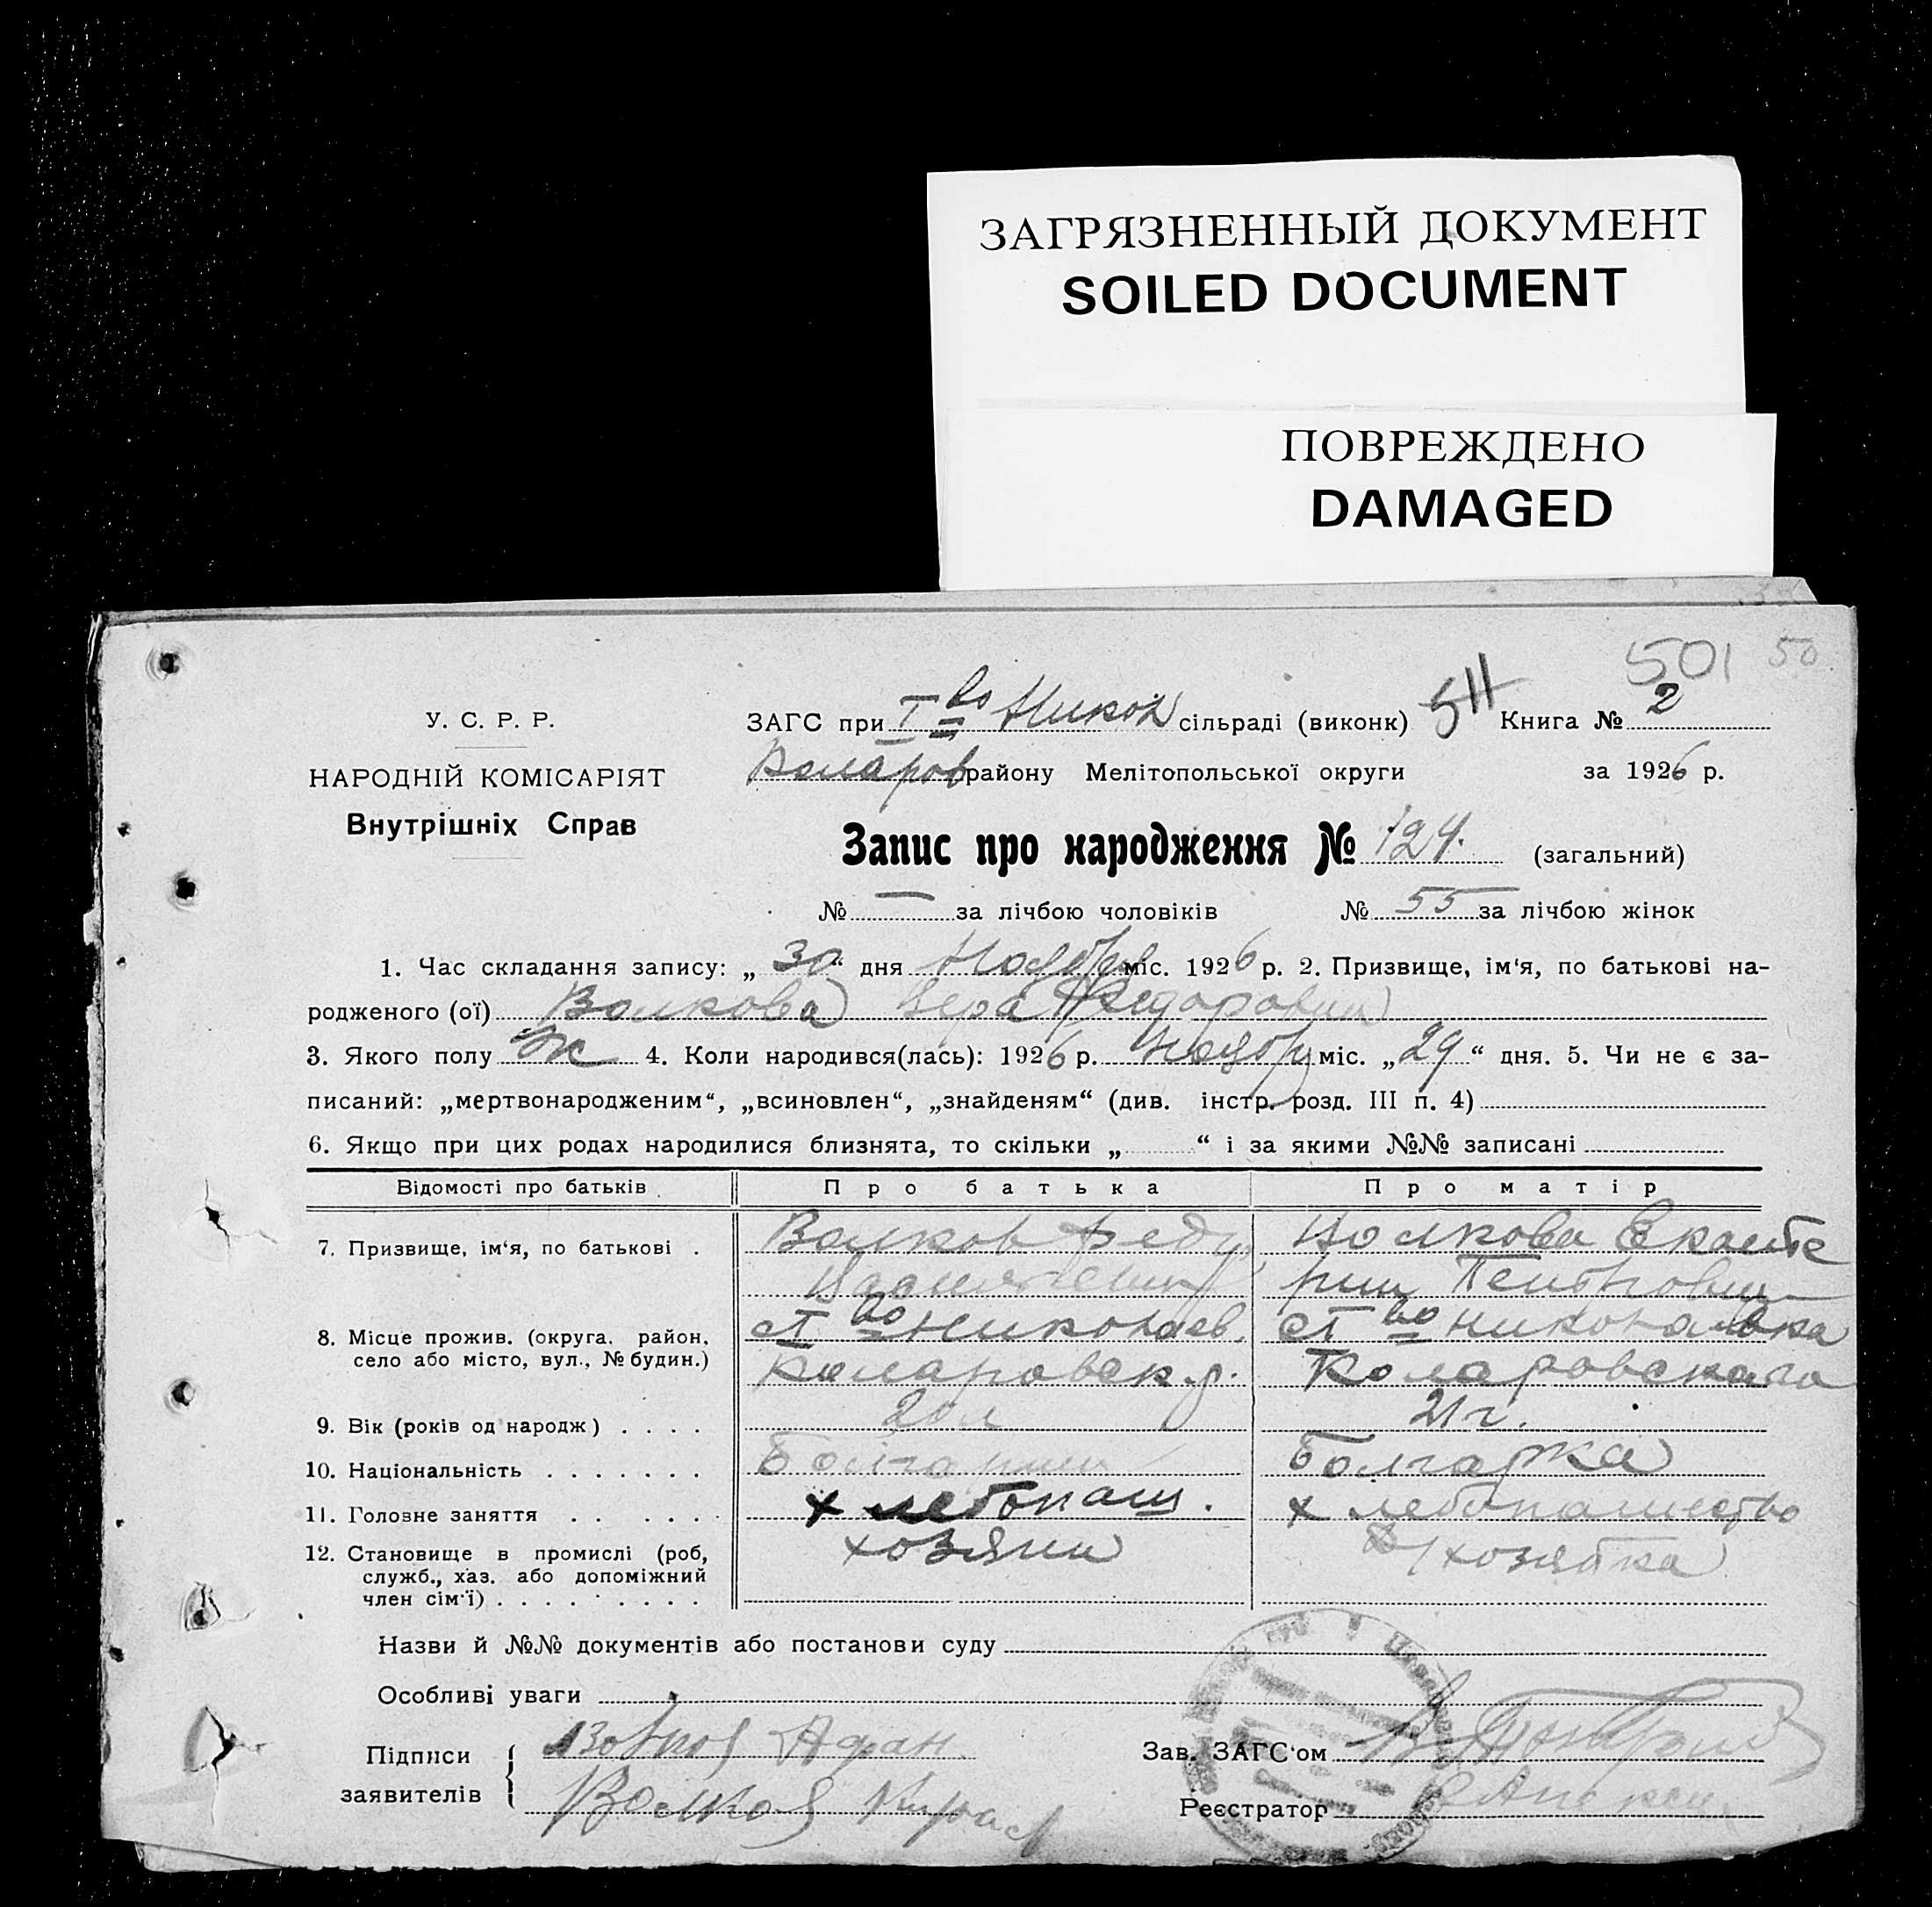 ЗАГРЯЗНЕННЫЙ ДОКУМЕНТ
SOILED DOCUMENT
ПОВРЕЖДЕНО
DAMAGED
501 50
У. С. Р. Р. ЗАГС при І во Никол сільраді (виконк) 511 Книга № 2
НАРОДНІЙ КОМІСАРІЯТ Коларов району Мелітопольської округи за 1926 р.
Внутрішніх Справ
Запис про народження № 124. (загальний)
№ — за лічбою чоловіків № 55 за лічбою жінок
1. Час складання запису: „ 30 “ дня Ноября міс. 1926 р. 2. Призвище, ім‘я, по батькові на-
родженого (ої) Волкова Вера Федоровна
3. Якого полу Ж 4. Коли народився(лась): 1926 р. Ноября міс. „ 29 “ дня. 5. Чи не є за-
писаний: „мертвонародженим“, „всиновлен“, „знайденям“ (див. інстр. розд. III п. 4)
6. Якщо при цих родах народилися близнята, то скільки „ “ і за якими №№ записані
Відомості про батьків Про батька Про матір
7. Призвище, ім‘я, по батькові . Волков Волкова Екате
рин Петровна
8. Місце прожив. (округа, район, ст во Николаев. ст во Николаевка
село або місто, вул., № будин.) Коларовск. р. Коларовскаго
9. Вік (років од народж) . . . . 20 л 21 г.
10. Національність . . . . . . . Болгарин Болгарка
11. Головне заняття . . . . . . хлебопаш. хлебопашество
12. Становище в промислі (роб, хозяин хозяйка
служб., хаз. або допоміжний
член сім‘ї) . . . . . . . . .
Назви й №№ документів або постанови суду
Особливі уваги
Підписи Волков Афан Зав. ЗАГС‘ом
заявителів Волков Реєстратор